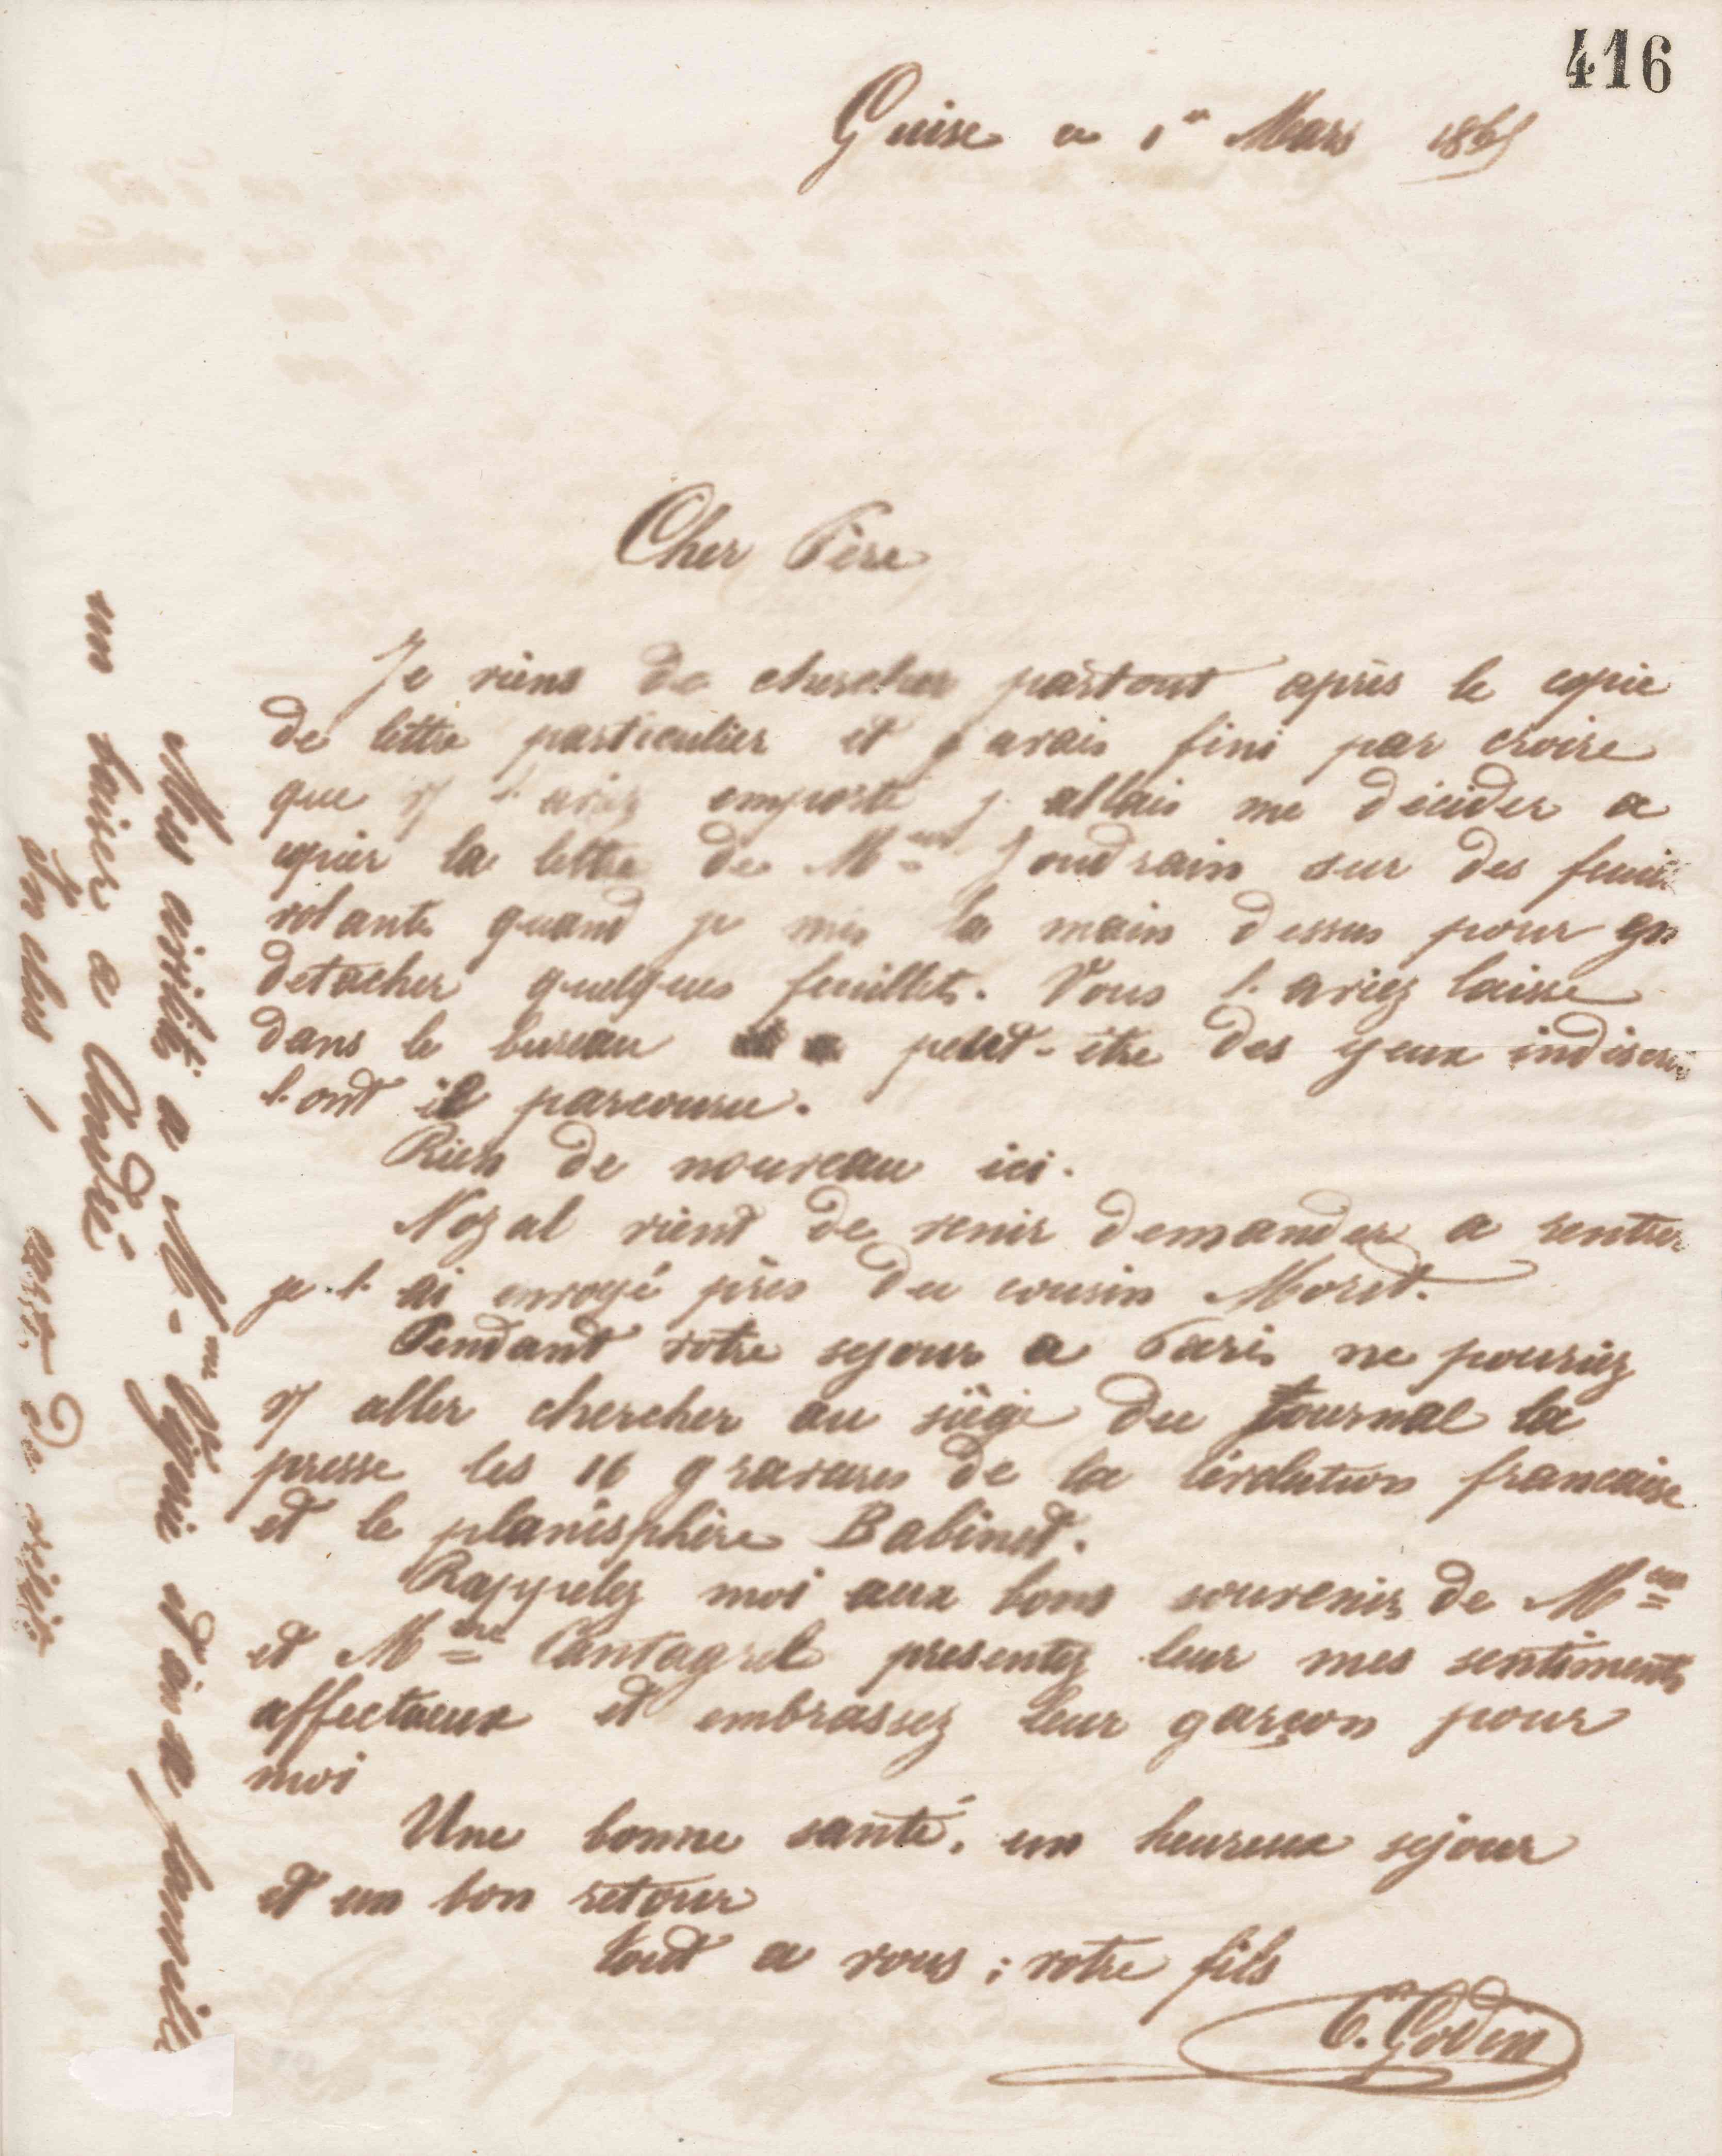 416
Guise ce 1er Mars 1865
Cher Père
Je viens de chercher partout après le copie
de lettre particulier et j avais fini par croire
que v/ l'aviez emporté j allais me décider a
copier la lettre de Mr sur des
volante quand je mis la main dessus pour en
detacher quelques feuillets. Vous l'aviez laissé
dans le bureau peut-être des yeux
l'ont il parcouru.
Rien de nouveau ici.
Nozal vient de venir demander a rentrer
je l'ai envoyé près du cousin Moret.
Pendant votre sejour a Paris ne pouriez
v/ aller chercher au siège du Journal la
presse les 16 gravures de la révolution francaise
et le planisphère Babinet.
Rappelez moi aux bons souvenirs de Mr
et Mme Cantagrel presentez leur mes sentiments
affectueux et embrassez leur garçon pour
moi
Une bonne santé, un heureux sejour
et un bon retour
tout a vous ; votre fils
E. Godin
Mes a Mme et a sa famille
un baiser a André